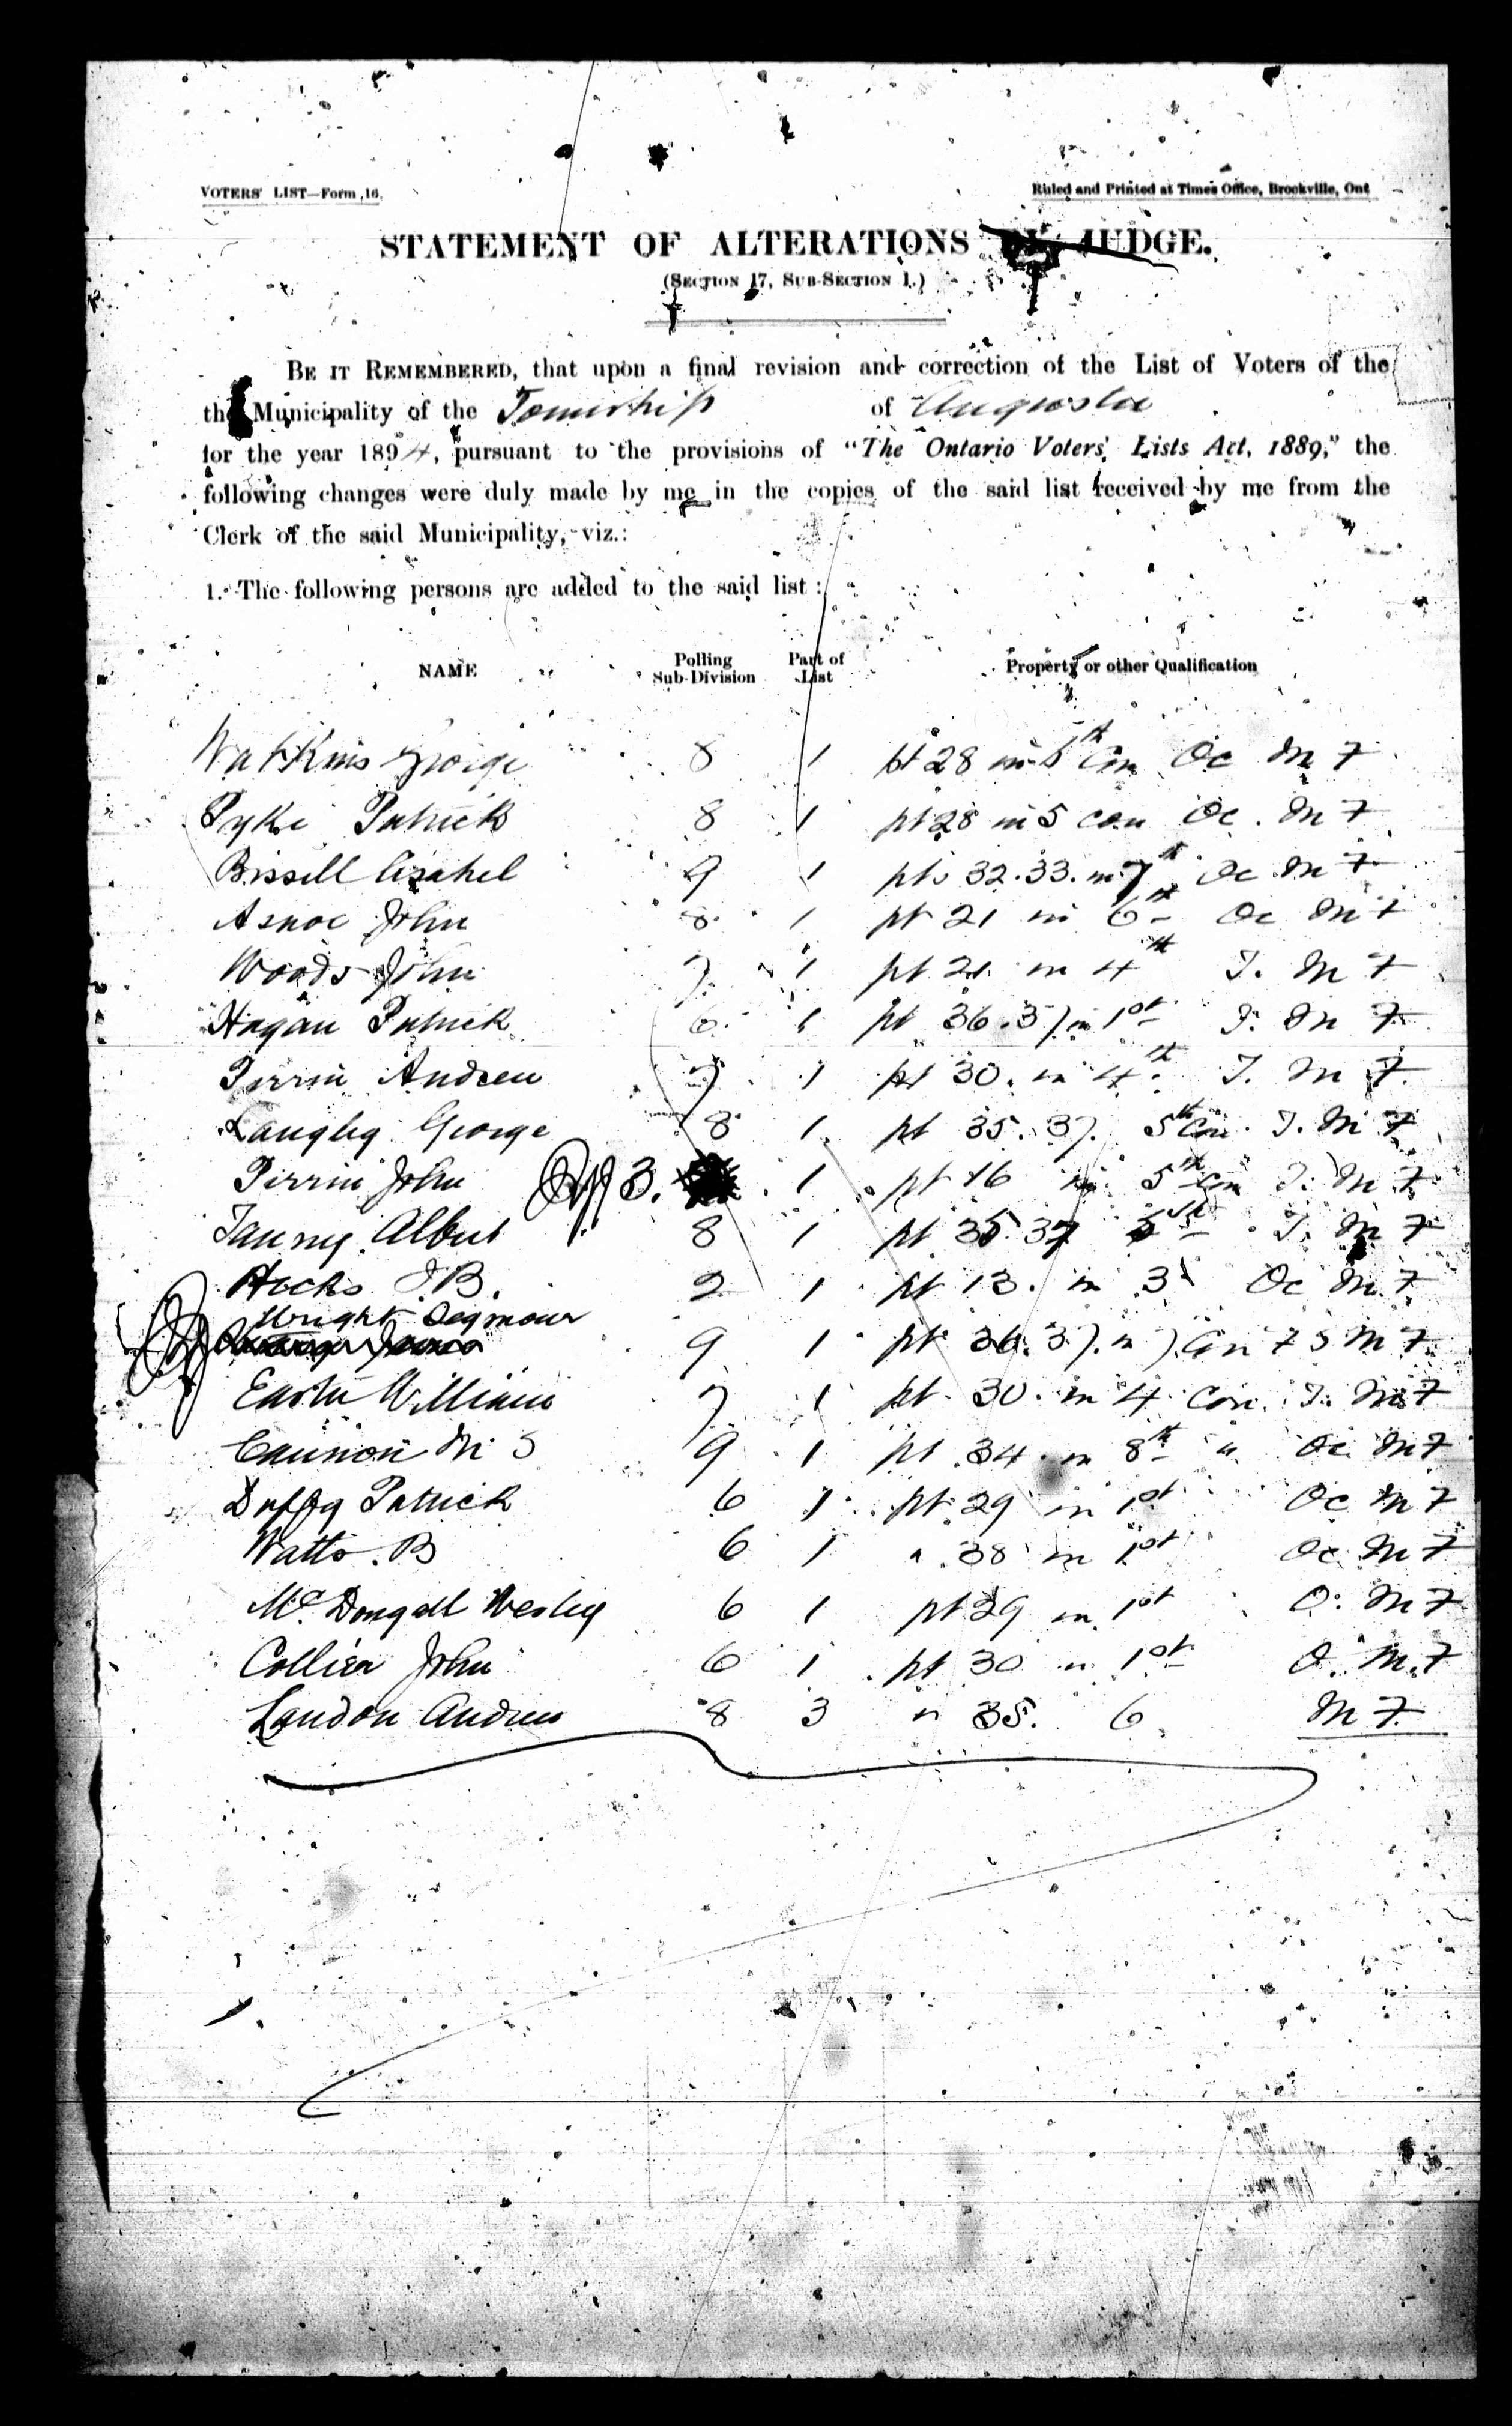 VOTERS' LIST—Form 16.
Ruled and Printed at Times Office, Brockville, Ont
STATEMENT OF ALTERATIONS BY JUDGE.
(SECTION 17, SUB-SECTION 1.)
BE IT REMEMBERED, that upon a final revision and correction of the List of Voters of the
the Municipality of the Township of Augusta
for the year 1894, pursuant to the provisions of "The Ontario Voters' Lists Act, 1889," the
following changes were duly made by me in the copies of the said list received by me from the
Clerk of the said Municipality, viz.:
1. The following persons are added to the said list:
NAME Polling Sub-Division Part of List Property or other Qualification
Watkins George 8 1 pt 28 in 5th Con Oc M F
Pyke Patrick 8 1 pt 28 in 5 con Oc. M F
Bissell Asahel 9 1 pts 32.33. in 7th Oc M F
Asnoe John 8 1 pt 21 in 6th Oc M F
Woods John 7 1 pt 21 in 4th T. M F
Hagan Patrick 6 1 pt 36.37 in 1st T. M F
Perrin Andrew 7 1 pt 30. in 4th T. M F
Langley George 8 1 pt 35.37. 5th Con. T. M F
Perrin John 3. 1 pt 16 in 5th Con T. M F
Tanny Albert 8 1 pt 35 37 5th T. M F
Hicks J.B. 2 1 pt 13. in 3d Oc M F
Wright Seymour
9 1 pt 36.37. in 7 Con F S M F
Easter William 7 1 pt. 30. in 4 Con. T. M F
Cannon M S 9 1 pt 34 in 8th " Oc M F
Duffy Patrick 6 1 pt 29 in 1st Oc M F
Watts. B 6 1 " 38 in 1st Oc M F
McDougall Wesley 6 1 pt 29 in 1st O. M F
Collier John 6 1 pt 30 in 1st O. M. F
Landon Andrew 8 3 " 35. 6 M F.